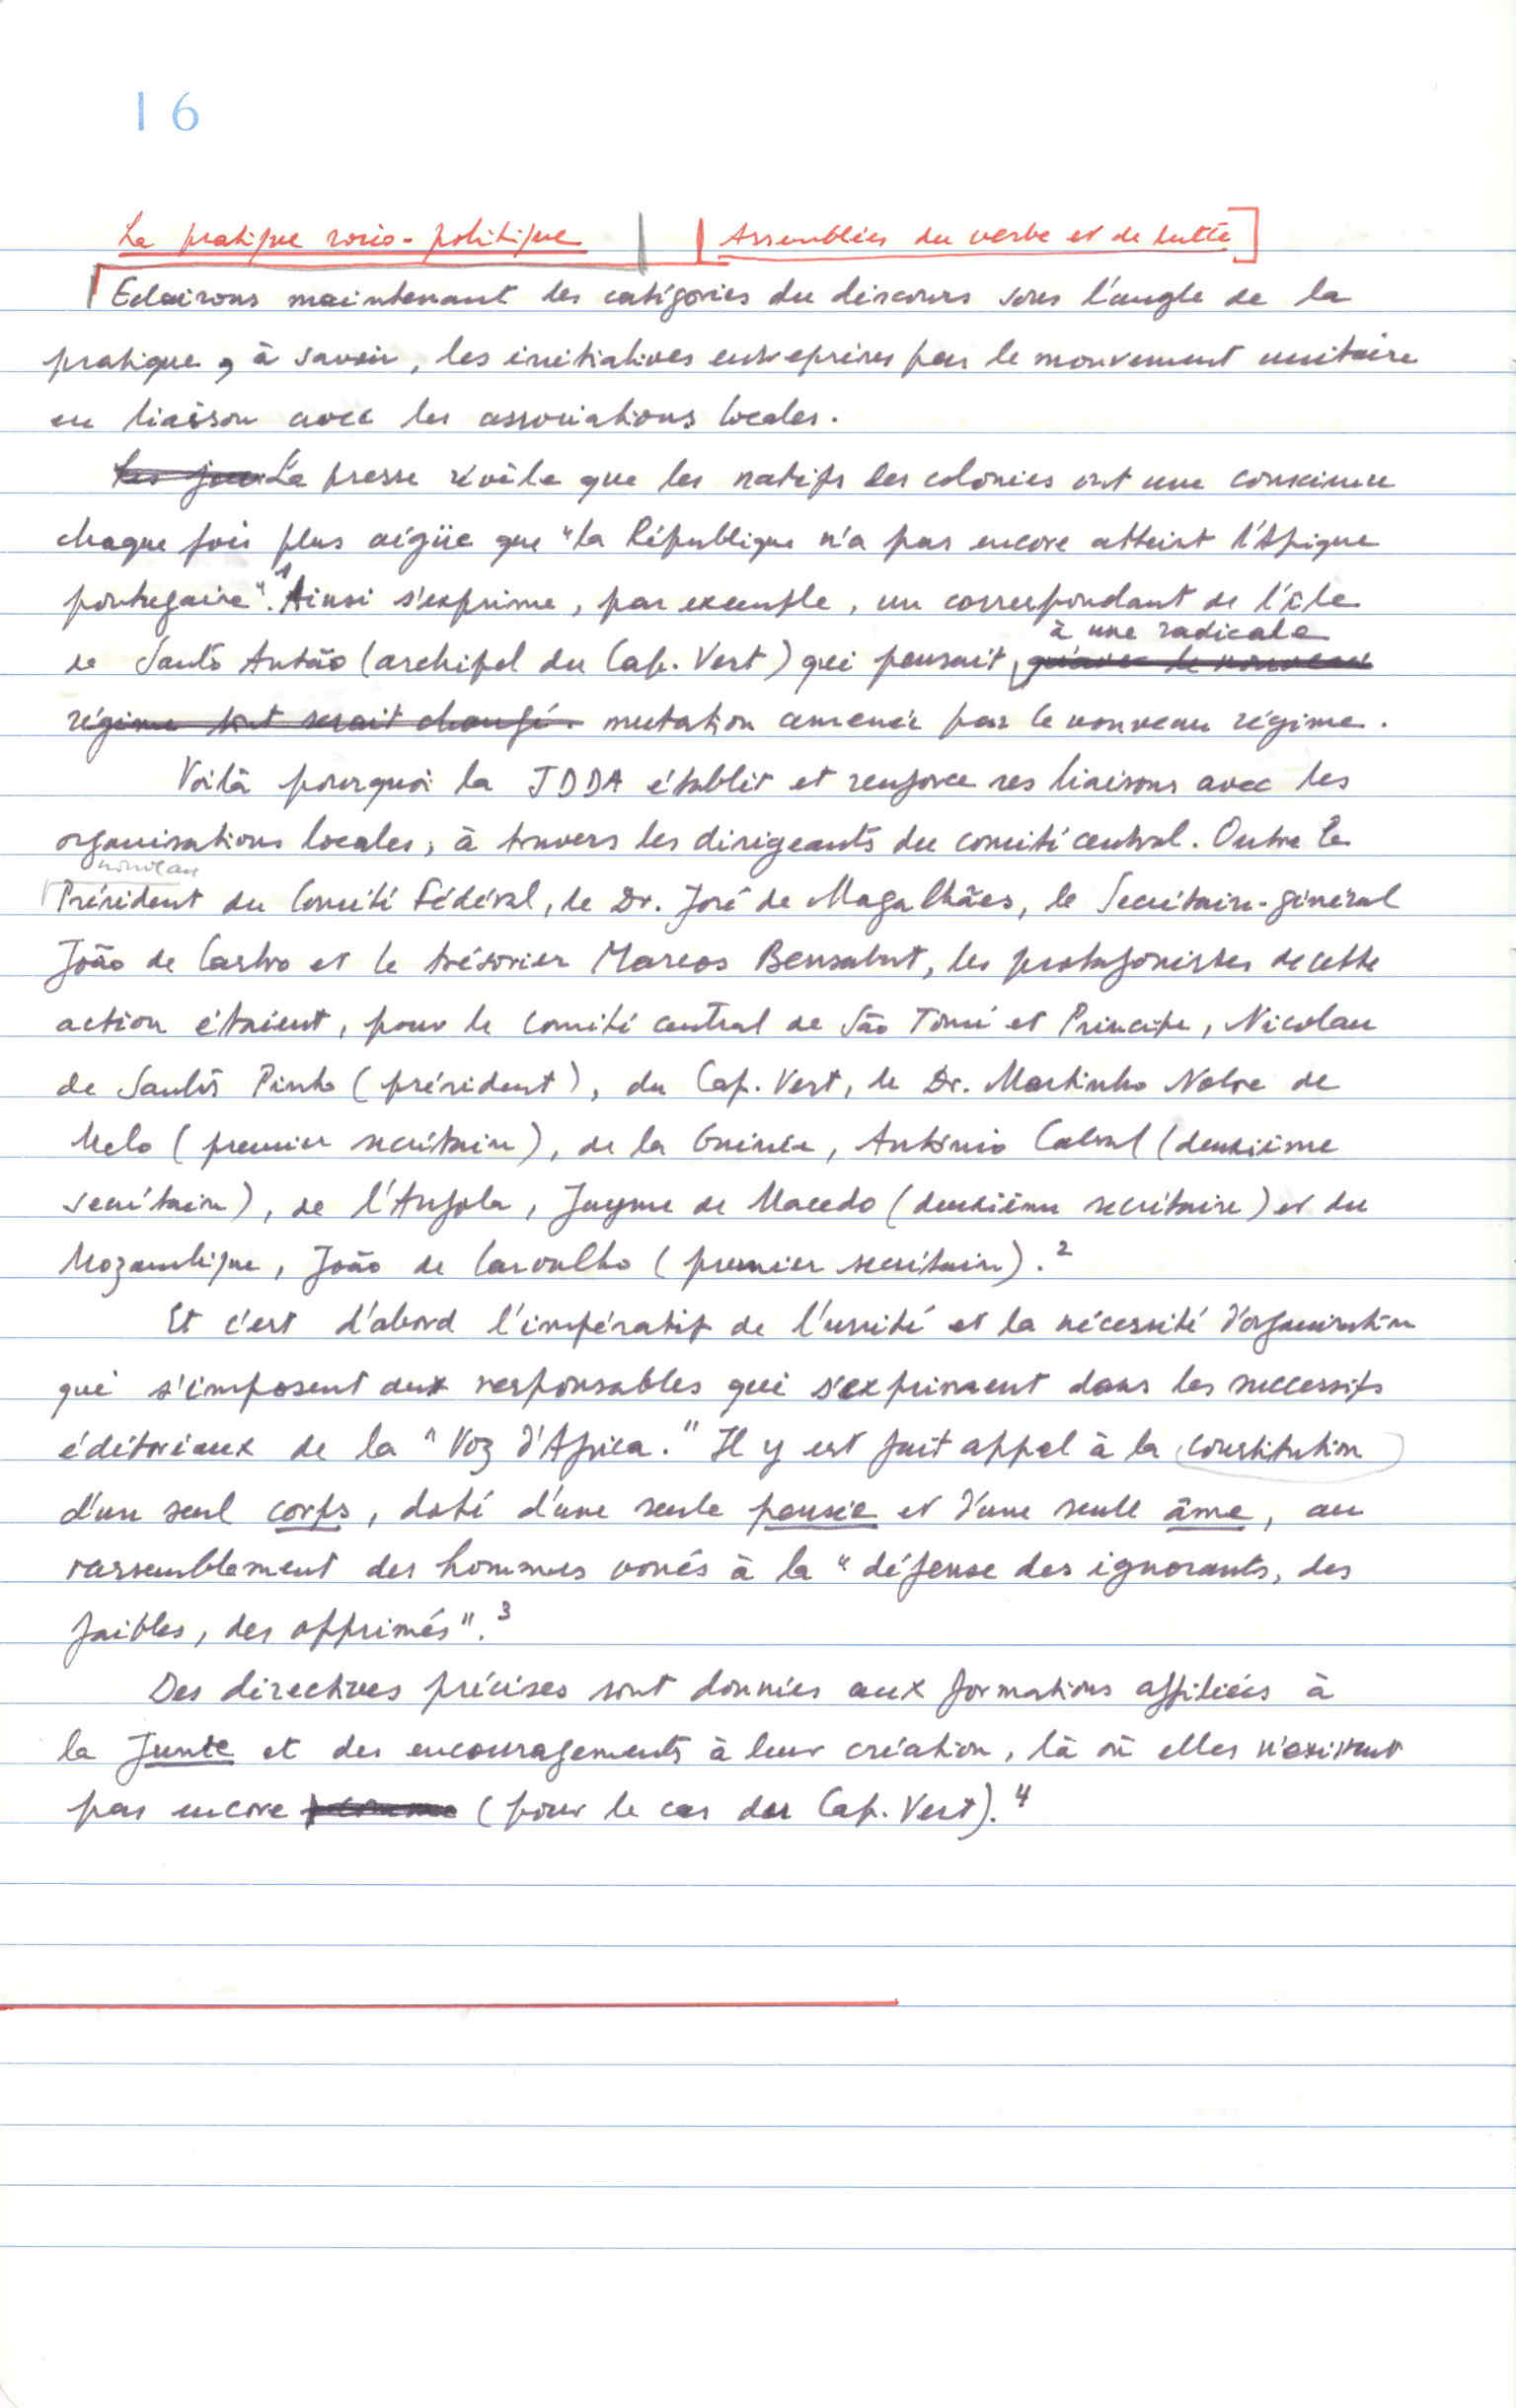 16
La pratique socio-politique [Assemblées du verbe et de lutte]
Eclairons maintenant les catégories du discours sous l'angle de la
pratique, à savoir, les initiatives entreprises par le mouvement unitaire
en liaison avec les associations locales.
La presse révèle que les natifs des colonies ont une conscience
chaque fois plus aigüe que "la République n'a pas encore atteint l'Afrique
portugaise".1 Ainsi s'exprime, par exemple, un correspondant de l'île
à une radicale
de Santo Antão (archipel du Cap. Vert) qui pensait, qu'avec le nouveau
régime tout serait changé. mutation amenée par le nouveau régime.
Voilà pourquoi la JDDA établit et renforce ses liaisons avec les
organisations locales, à travers les dirigeants du comité central. Outre le
nouveau
Président du Comité Fédéral, le Dr. José de Magalhães, le Secrétaire-général
João de Castro et le trésorier Marcos Bensabat, les protagonistes de cette
action étaient, pour le comité central de São Tomé et Principe, Nicolau
de Santos Pinto (président), du Cap. Vert, le Dr. Martinho Nobre de
Melo (premier secrétaire), de la Guinée, António Cabral (deuxième
secrétaire), de l'Angola, Jayme de Macedo (deuxième secrétaire) et du
Mozambique, João de Carvalho (premier secrétaire).2
Et c'est d'abord l'impératif de l'unité et la nécessité d'organisation
qui s'imposent aux responsables qui s'expriment dans les successifs
éditoriaux de la "Voz d'Africa." Il y est fait appel à la constitution
d'un seul corps, doté d'une seule pensée et d'une seule âme, au
rassemblement des hommes voués à la "défense des ignorants, des
faibles, des opprimés".3
Des directives précises sont données aux formations affiliées à
la Junte et des encouragements à leur création, là où elles n'existent
pas encore (pour le cas du Cap. Vert).4